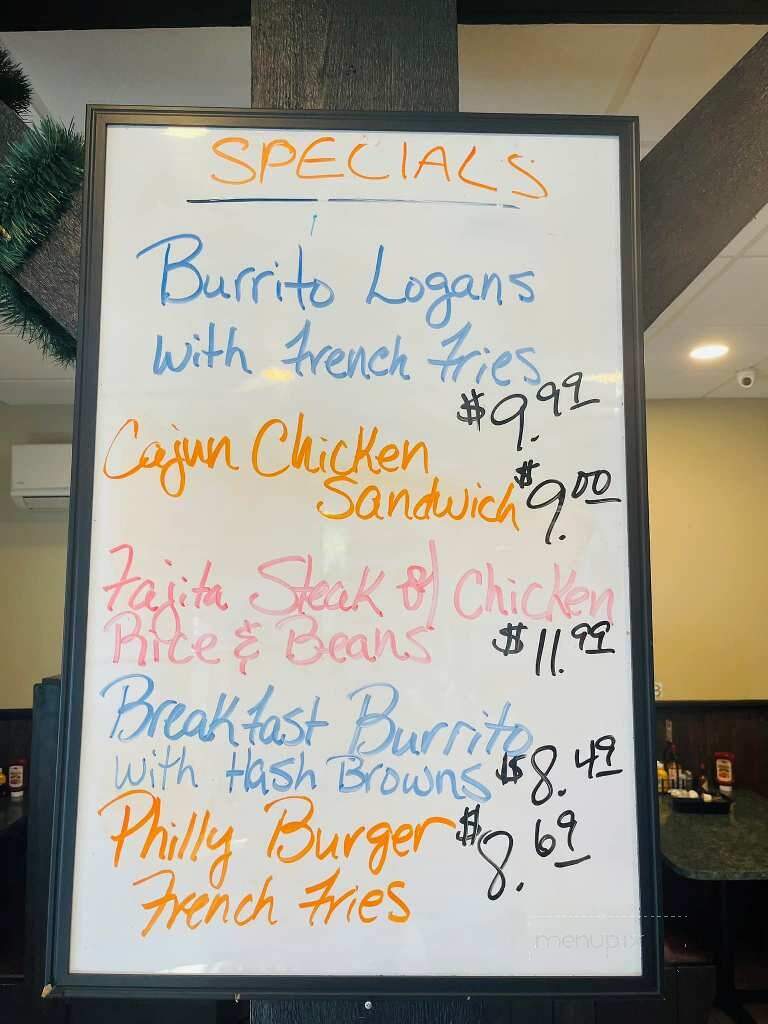 SPECIALS
Burrito Logans
with French Fries
$9.99
Cajun Chicken
Sandwich $9.00
Fajita Steak o/ Chicken
Rice & Beans $11.99
Breakfast Burrito
with Hash Browns $8.49
Philly Burger $8.69
French Fries
menupix